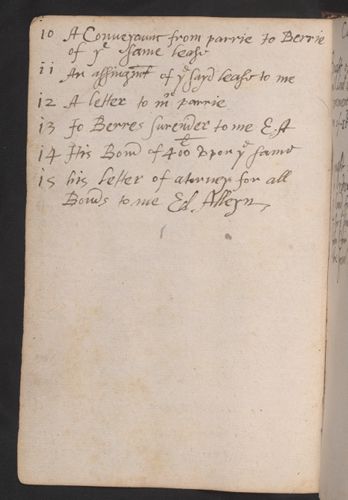 10 A Conveyaunc from parrie to Berrie
of yᵉ same lease
11 An assingmt of yᵉ sayd lease to me
12 A letter to mʳ parrie
13 Jo Berres surender to me E. A
14 His Bond of 400ˡ vpon yᵉ same
15 his letter of atorney for all
Bonds to me Ed Alleyn